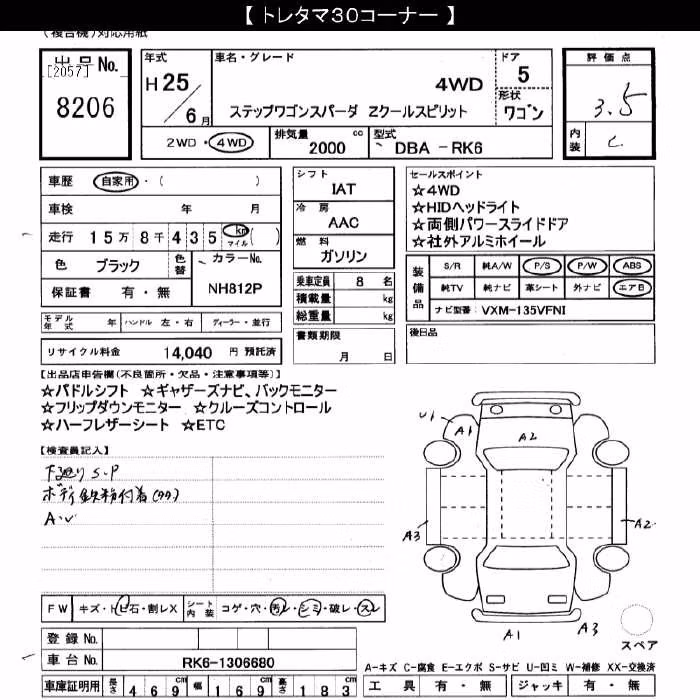 【 トレタマ30コーナー 】
(複合機)対応用紙
出品No.
[2057]
8206
年式
H 25 / 6 月
車名・グレード
4WD
ステップワゴンスパーダ Zクールスピリット
ドア
5
形状
ワゴン
評価点
3.5
内装
C
2WD・4WD
排気量 cc
2000
型式
DBA -RK6
車歴 自家用・( )
車検 年 月
走行 15万8千435 km マイル ( )
色 ブラック
色替
カラーNo.
NH812P
保証書 有・無
モデル年式 年 ハンドル 左・右 ディーラー・並行
リサイクル料金 14,040 円 預託済
シフト
IAT
冷房
AAC
燃料
ガソリン
乗車定員 8 名
積載量 kg
総重量 kg
書類期限
月 日
セールスポイント
☆4WD
☆HIDヘッドライト
☆両側パワースライドドア
☆社外アルミホイール
装備品
S/R 純A/W P/S P/W ABS
純TV 純ナビ 革シート 外ナビ エアB
ナビ型番 VXM-135VFNI
後日品
【出品店申告欄(不良箇所・欠品・注意事項等)】
☆パドルシフト ☆ギャザーズナビ、バックモニター
☆フリップダウンモニター ☆クルーズコントロール
☆ハーフレザーシート ☆ETC
【検査員記入】
下廻り S.P
ボディ鉄粉付着
A.U
U1
A1
A2
A3
A2
A1
A3
スペア
FW キズ・トビ石・割レX
シート内装 コゲ・穴・汚レ・シミ・破レ・スレ
登録No.
車台No. RK6-1306680
車庫証明用 長さ 469cm 幅 169cm 高さ 183cm
A-キズ C-腐食 E-エクボ S-サビ U-凹ミ W-補修 XX-交換済
工具 有・無 ジャッキ 有・無